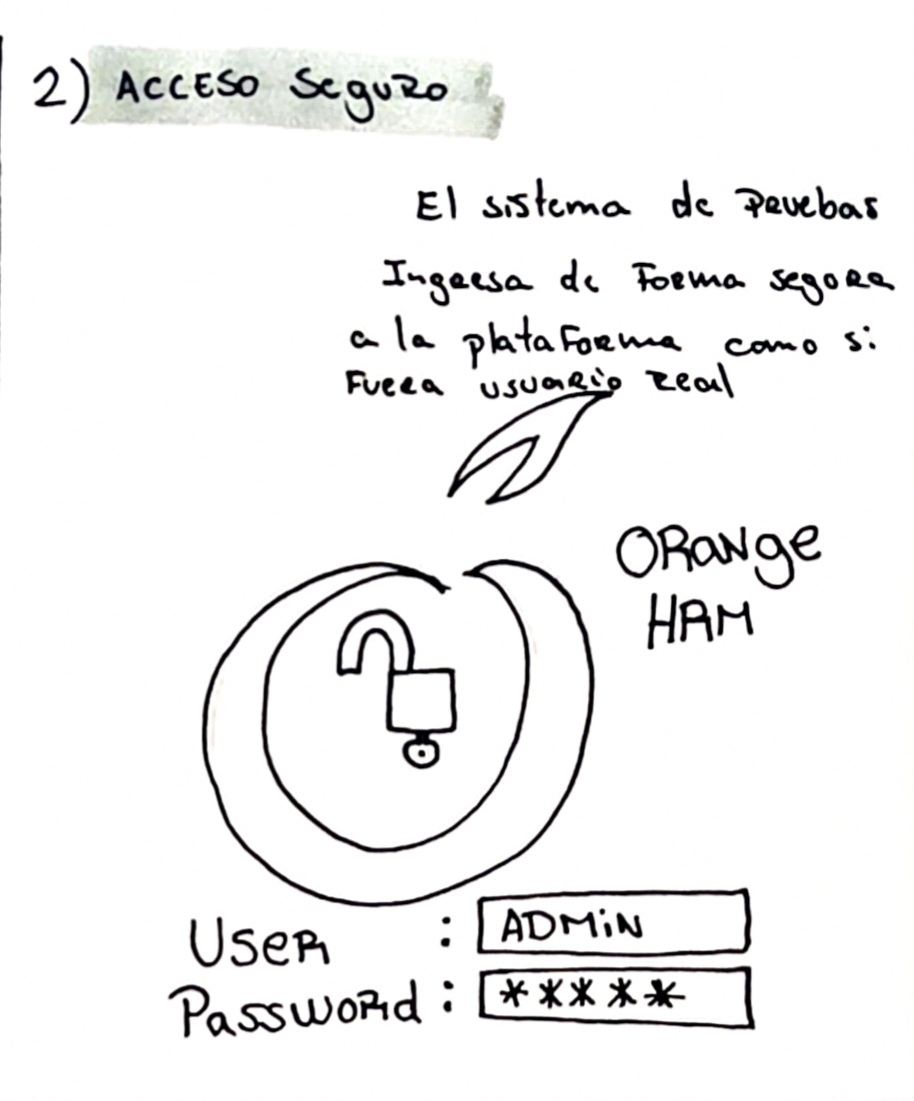 2) ACCESO SeguRo
El sistema de PRuebas
IngResa de FoRma seguRa
a la plataFoRma como si
FueRa usuaRio Real
ORANge
HRM
UseR : ADMiN
PasswoRd : *****